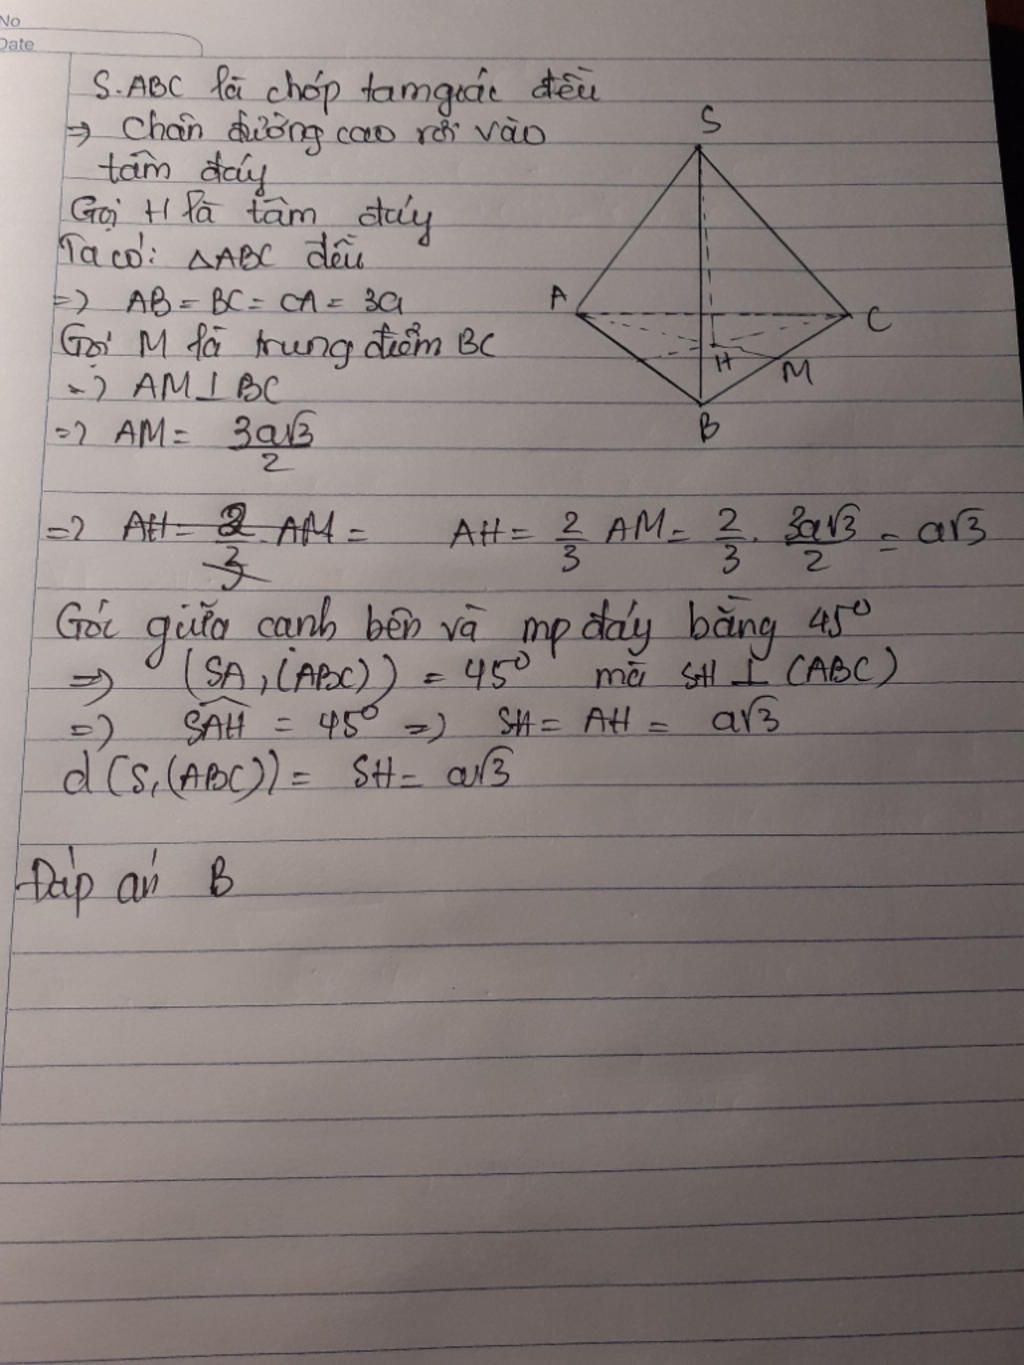 No
Date
S.ABC là chóp tam giác đều
=> Chân đường cao rơi vào
tâm đáy
Gọi H là tâm đáy
Ta có: △ABC đều
=> AB = BC = CA = 3a
Gọi M là trung điểm BC
=> AM ⊥ BC
=> AM = 3a√3/2
=> AH = 2/3 AM = AH = 2/3 AM = 2/3 . 3a√3/2 = a√3
Góc giữa cạnh bên và mp đáy bằng 45°
=> (SA, (ABC)) = 45° mà SH ⊥ (ABC)
=> SAH = 45° => SH = AH = a√3
d(S, (ABC)) = SH = a√3
Đáp án B
S
A
C
H
M
B